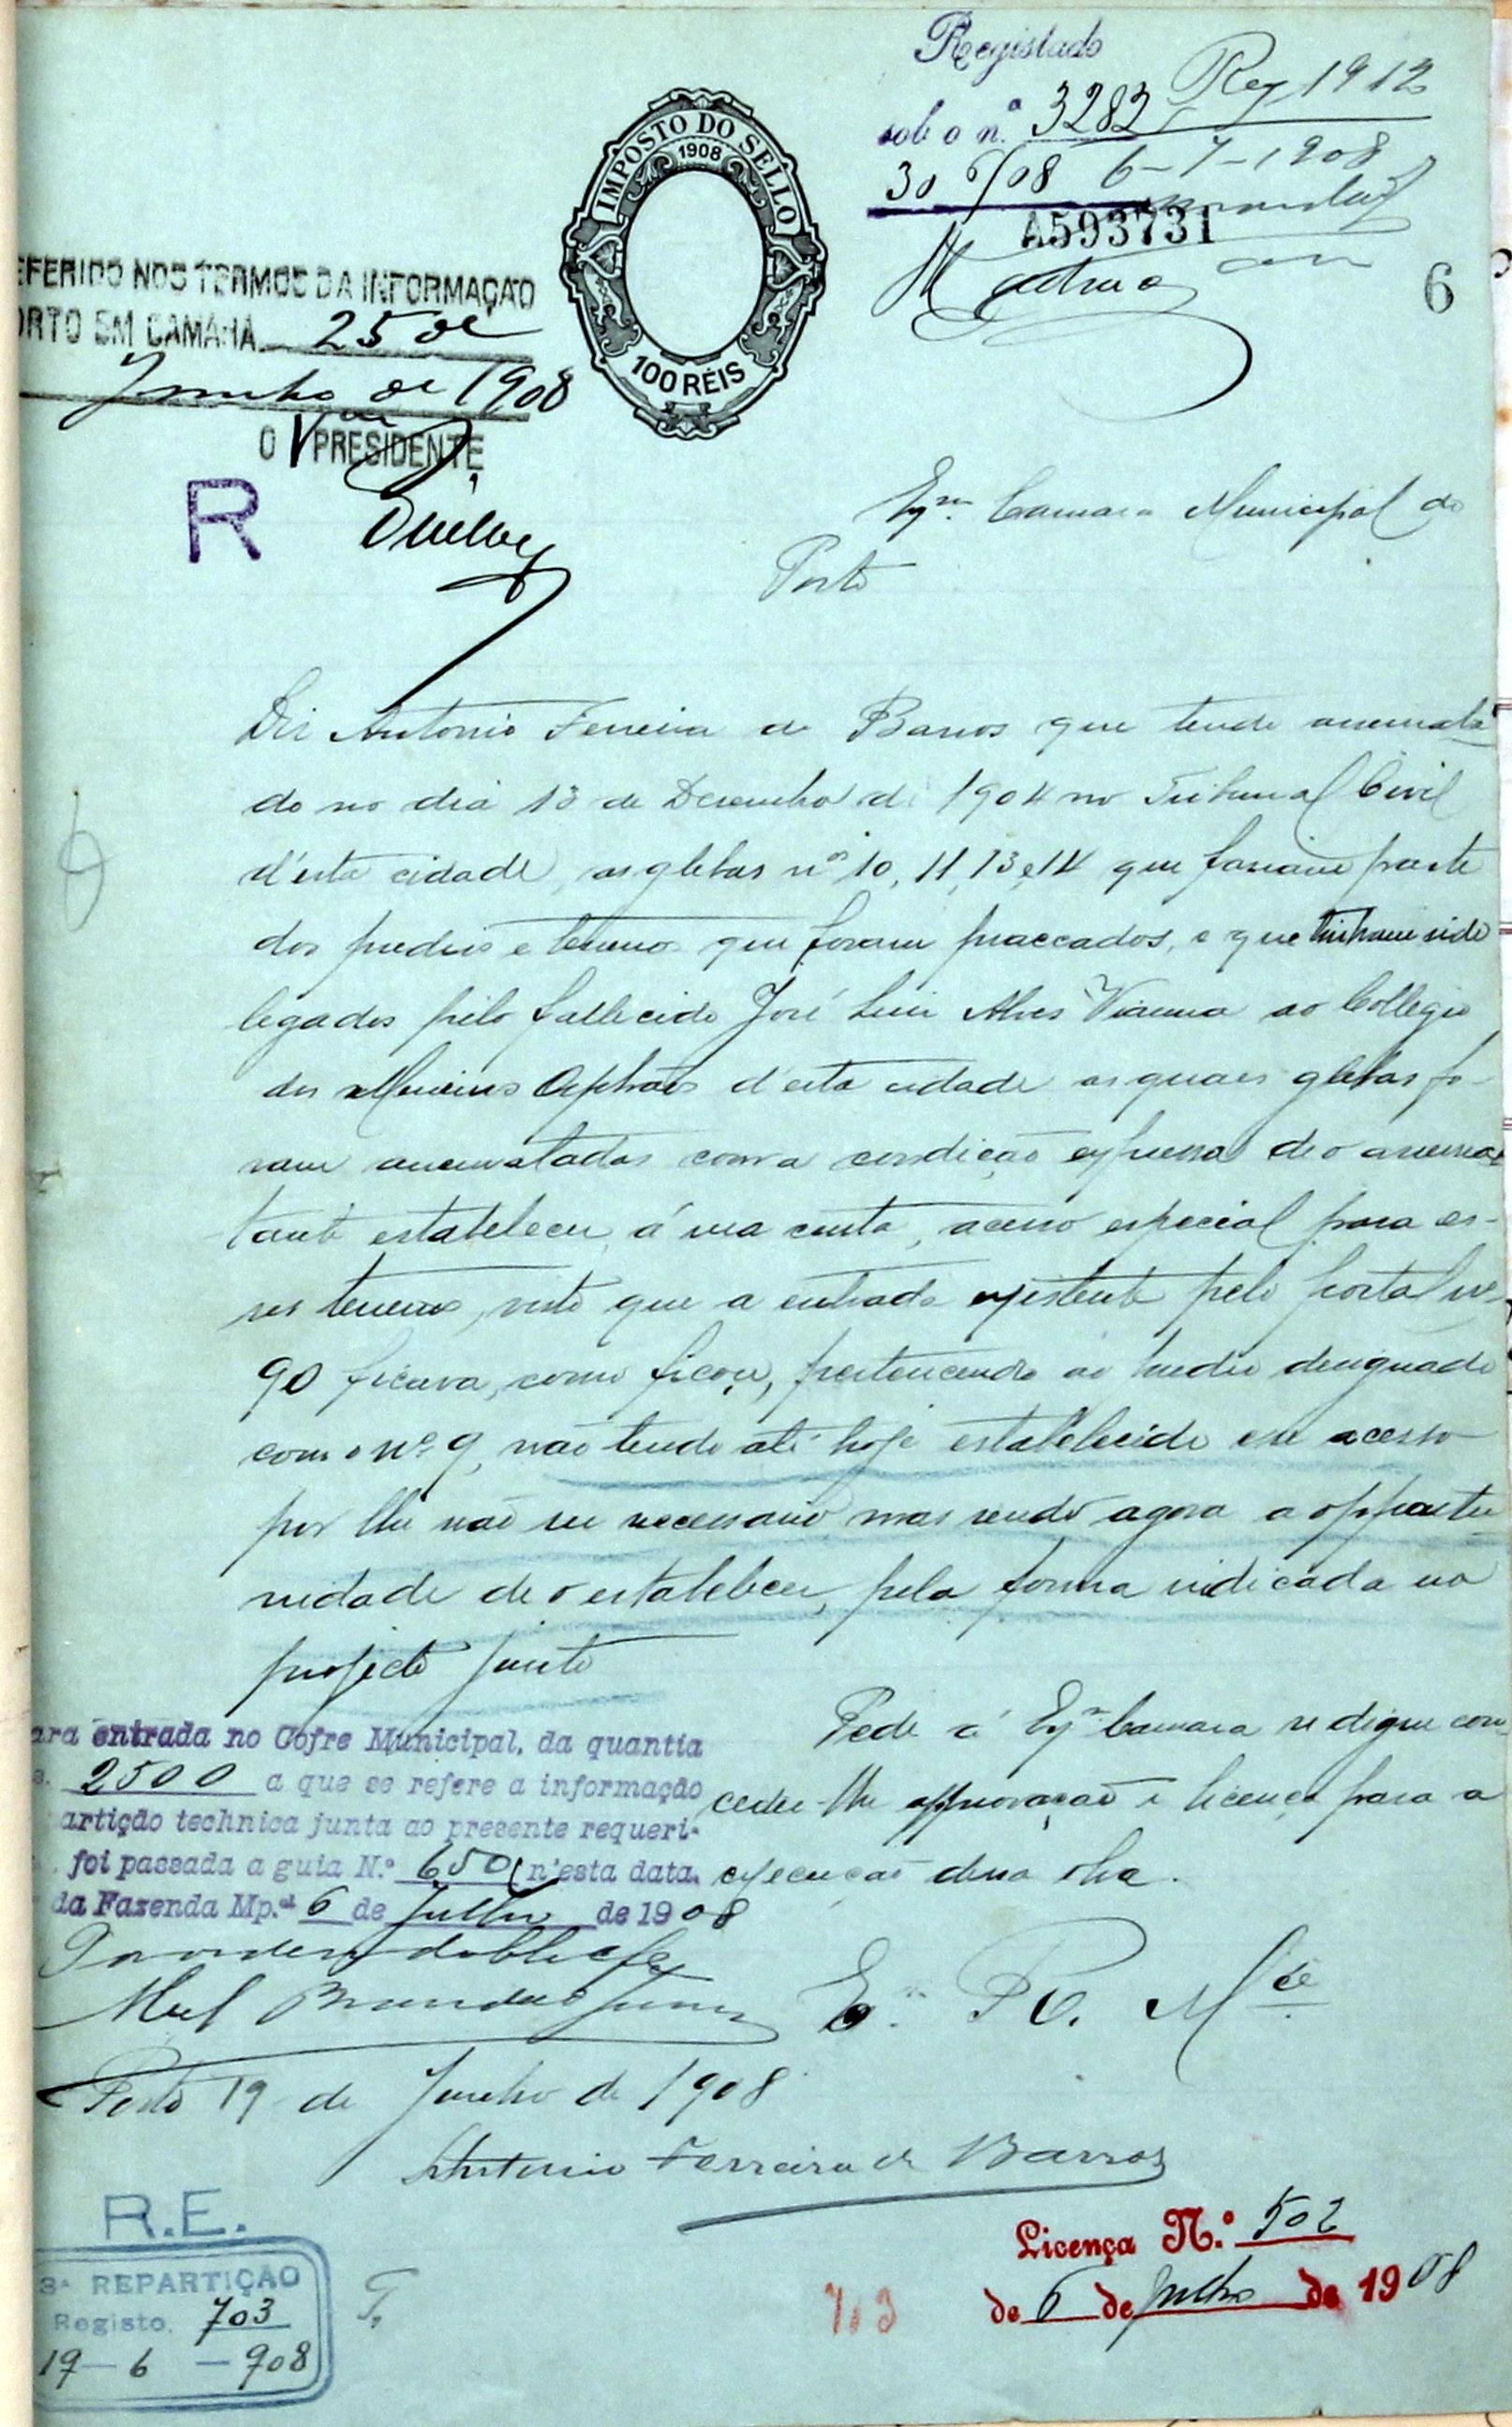 Registado
Reg 1912
sob o n.º 3282
30 6/08 6-7-1908
A593731
6
IMPOSTO DO SELLO
1908
100 RÉIS
EFERIDO NOS TERMOS DA INFORMAÇÃO
ORTO EM CAMARA 25 de
Junho de 1908
O V PRESIDENTE
R
Exmª Camara Municipal do
Porto
Diz Antonio Ferreira de Barros que tendo arremata-
do no dia 13 de Dezembro de 1904 no Tribunal Civil
d'esta cidade, as glebas nºs 10, 11, 13 e 14 que faziam parte
dos predios e terreno que foram praceados, e que tinham sido
legados pelo fallecido José Luiz Alves Vianna ao Collegio
dos Meninos Orphãos d'esta cidade as quaes glebas fo-
ram arrematadas com a condição expressa de o arrema-
tante estabelecer, á sua custa, acesso especial para es-
ses terrenos, visto que a entrada existente pelo portal nº
90 ficava, como ficou, pertencendo ao predio designado
com o nº 9, não tendo até hoje estabelecido esse acesso
por lhe não ser necessario mas sendo agora a opportu-
nidade de o estabelecer, pela forma indicada no
projecto junto
Pede á Exmª Camara se digne con-
ceder-lhe approvação e licença para a
execução dessa obra.
E. R. Mcê
ara entrada no Cofre Municipal, da quantia
s. 2500 a que se refere a informação
artição technica junta ao presente requeri-
foi passada a guia N.º 650 n'esta data.
da Fazenda Mp.al 6 de Julho de 1908
Porto 19 de Junho de 1908
Antonio Ferreira de Barros
R.E.
3ª REPARTIÇÃO
Registo. 703
19-6-908
703
Licença N.º 502
de 6 de Julho de 1908